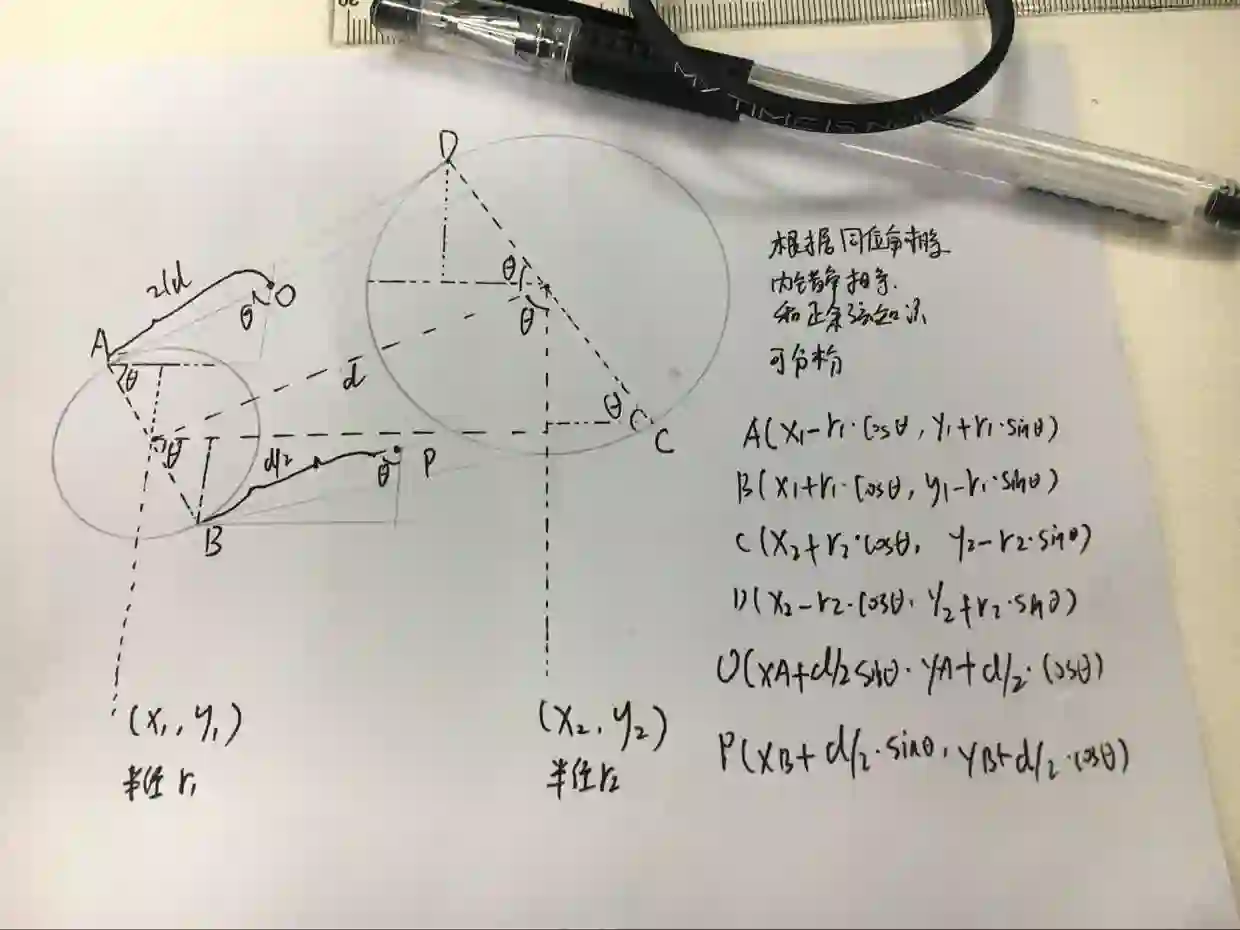 20
MY TIME IS NOW
D
θ
θ
2/d
θ
O
A
θ
d
θ
C
θ
d/2
θ
P
B
(x₁, y₁)
半径 r₁
(x₂, y₂)
半径 r₂
根据同位角相等
内错角相等
和正余弦知识
可分析
A(x₁-r₁·cosθ, y₁+r₁·sinθ)
B(x₁+r₁·cosθ, y₁-r₁·sinθ)
C(x₂+r₂·cosθ, y₂-r₂·sinθ)
D(x₂-r₂·cosθ, y₂+r₂·sinθ)
O(xA+d/2 sinθ, yA+d/2·cosθ)
P(xB+d/2·sinθ, yB+d/2·cosθ)